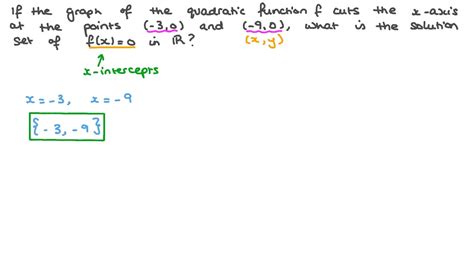 If the graph of the quadratic function f cuts the x-axis
at the points (-3,0) and (-9,0), what is the solution
set of f(x)=0 in ℝ? (x,y)
x-intercepts
x=-3, x=-9
{-3,-9}